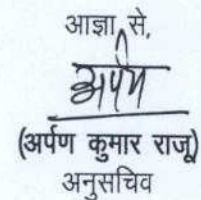 आज्ञा से,
अर्पण
(अर्पण कुमार राजू)
अनुसचिव